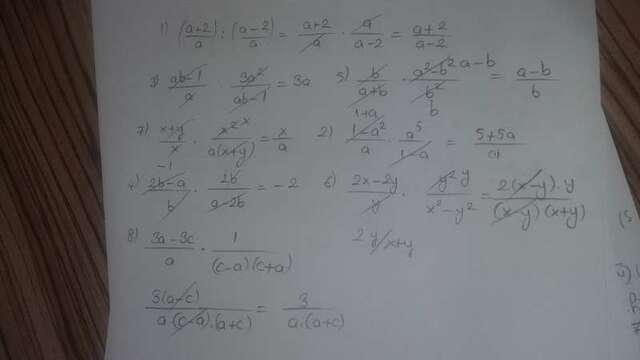 1) (a+2)/a : (a-2)/a = a+2/a · a/a-2 = a+2/a-2
3) ab-1/a · 3a²/ab-1 = 3a
5) b/a+b · a²-b²/b² a-b = a-b/b
7) x+y/x · x² x/a(x+y) = x/a
2) 1+a 1-a²/a · a5/1-a = 5+5a
4) -1 2b-a/b · 2b/a-2b = -2
6) 2x-2y/y · y² y/x²-y² = 2(x-y)·y/(x-y)(x+y)
2y/x+y
8) 3a-3c/a · 1/(c-a)(c+a)
3(a-c)/a(c-a)·(a+c) = 3/a·(a+c)